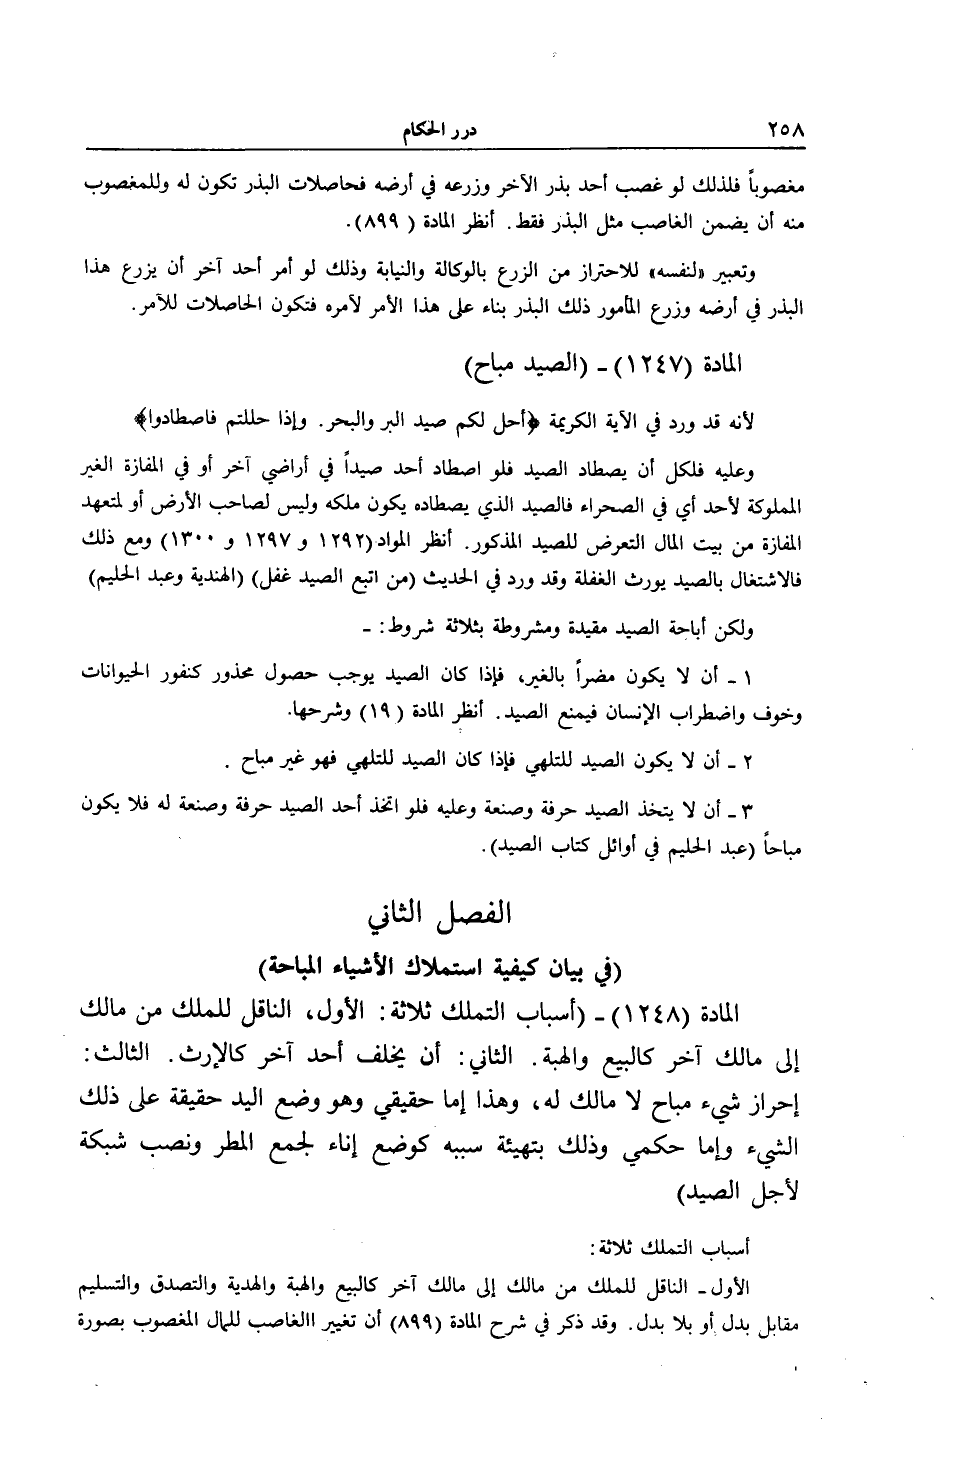 ٢٥٨
درر الحكام
مغصوباً فلذلك لو غصب أحد بذر الآخر وزرعه في أرضه فحاصلات البذر تكون له وللمغصوب
منه أن يضمن الغاصب مثل البذر فقط. أنظر المادة (٨٩٩).
وتعبير «لنفسه» للاحتراز من الزرع بالوكالة والنيابة وذلك لو أمر أحد آخر أن يزرع هذا
البذر في أرضه وزرع المأمور ذلك البذر بناء على هذا الأمر لآمره فتكون الحاصلات للآمر.
المادة (١٢٤٧) - (الصيد مباح)
لأنه قد ورد في الآية الكريمة ﴿أحل لكم صيد البر والبحر. وإذا حللتم فاصطادوا﴾
وعليه فلكل أن يصطاد الصيد فلو اصطاد أحد صيداً في أراضي آخر أو في المفازة الغير
المملوكة لأحد أي في الصحراء فالصيد الذي يصطاده يكون ملكه وليس لصاحب الأرض أو لمتعهد
المفازة من بيت المال التعرض للصيد المذكور. أنظر المواد (١٢٩٢ و ١٢٩٧ و ١٣٠٠) ومع ذلك
فالاشتغال بالصيد يورث الغفلة وقد ورد في الحديث (من اتبع الصيد غفل) (الهندية وعبد الحليم)
ولكن أباحة الصيد مقيدة ومشروطة بثلاثة شروط: -
١ - أن لا يكون مضراً بالغير، فإذا كان الصيد يوجب حصول محذور كنفور الحيوانات
وخوف واضطراب الإنسان فيمنع الصيد. أنظر المادة (١٩) وشرحها.
٢ - أن لا يكون الصيد للتلهي فإذا كان الصيد للتلهي فهو غير مباح .
٣ - أن لا يتخذ الصيد حرفة وصنعة وعليه فلو اتخذ أحد الصيد حرفة وصنعة له فلا يكون
مباحاً (عبد الحليم في أوائل كتاب الصيد).
الفصل الثاني
(في بيان كيفية استملاك الأشياء المباحة)
المادة (١٢٤٨) - (أسباب التملك ثلاثة: الأول، الناقل للملك من مالك
إلى مالك آخر كالبيع والهبة. الثاني: أن يخلف أحد آخر كالإرث. الثالث:
إحراز شيء مباح لا مالك له، وهذا إما حقيقي وهو وضع اليد حقيقة على ذلك
الشيء وإما حكمي وذلك بتهيئة سببه كوضع إناء لجمع المطر ونصب شبكة
لأجل الصيد)
أسباب التملك ثلاثة:
الأول - الناقل للملك من مالك إلى مالك آخر كالبيع والهبة والهدية والتصدق والتسليم
مقابل بدل أو بلا بدل. وقد ذكر في شرح المادة (٨٩٩) أن تغيير االغاصب للمال المغصوب بصورة